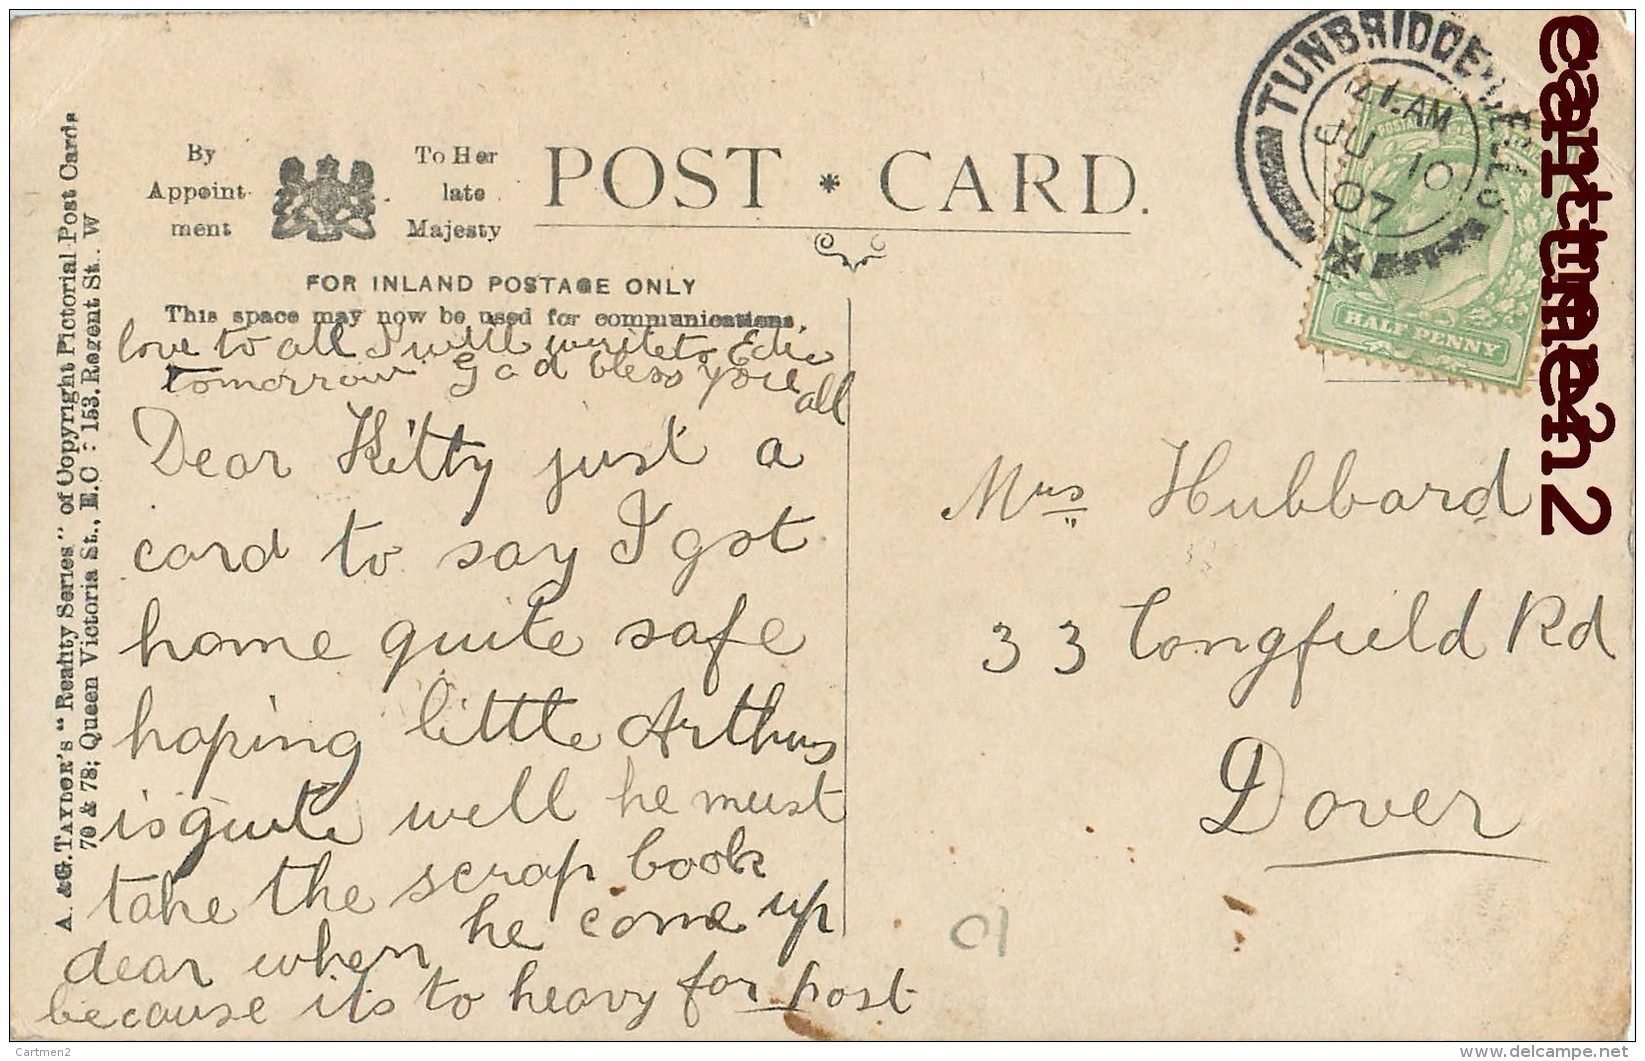 By
Appoint-
ment
To Her
late
Majesty
POST * CARD.
FOR INLAND POSTAGE ONLY
This space may now be used for communications.
love to all I will write to Edie
tomorrow God bless you
all
Dear Kitty just a
card to say I got
home quite safe
hoping little Arthur
is quite well he must
take the scrap book
dear when he come up
because its to heavy for post
A. & G. TAYLOR'S "Reality Series" of Copyright Pictorial Post Cards
70 & 78; Queen Victoria St., E.C : 153, Regent St.. W
TUNBRIDGE WELLS
AM
JU 10
07
HALF PENNY
Mrs Hubbard
33 Longfield Rd
Dover
cartmen2
Cartmen2
delcampe.net